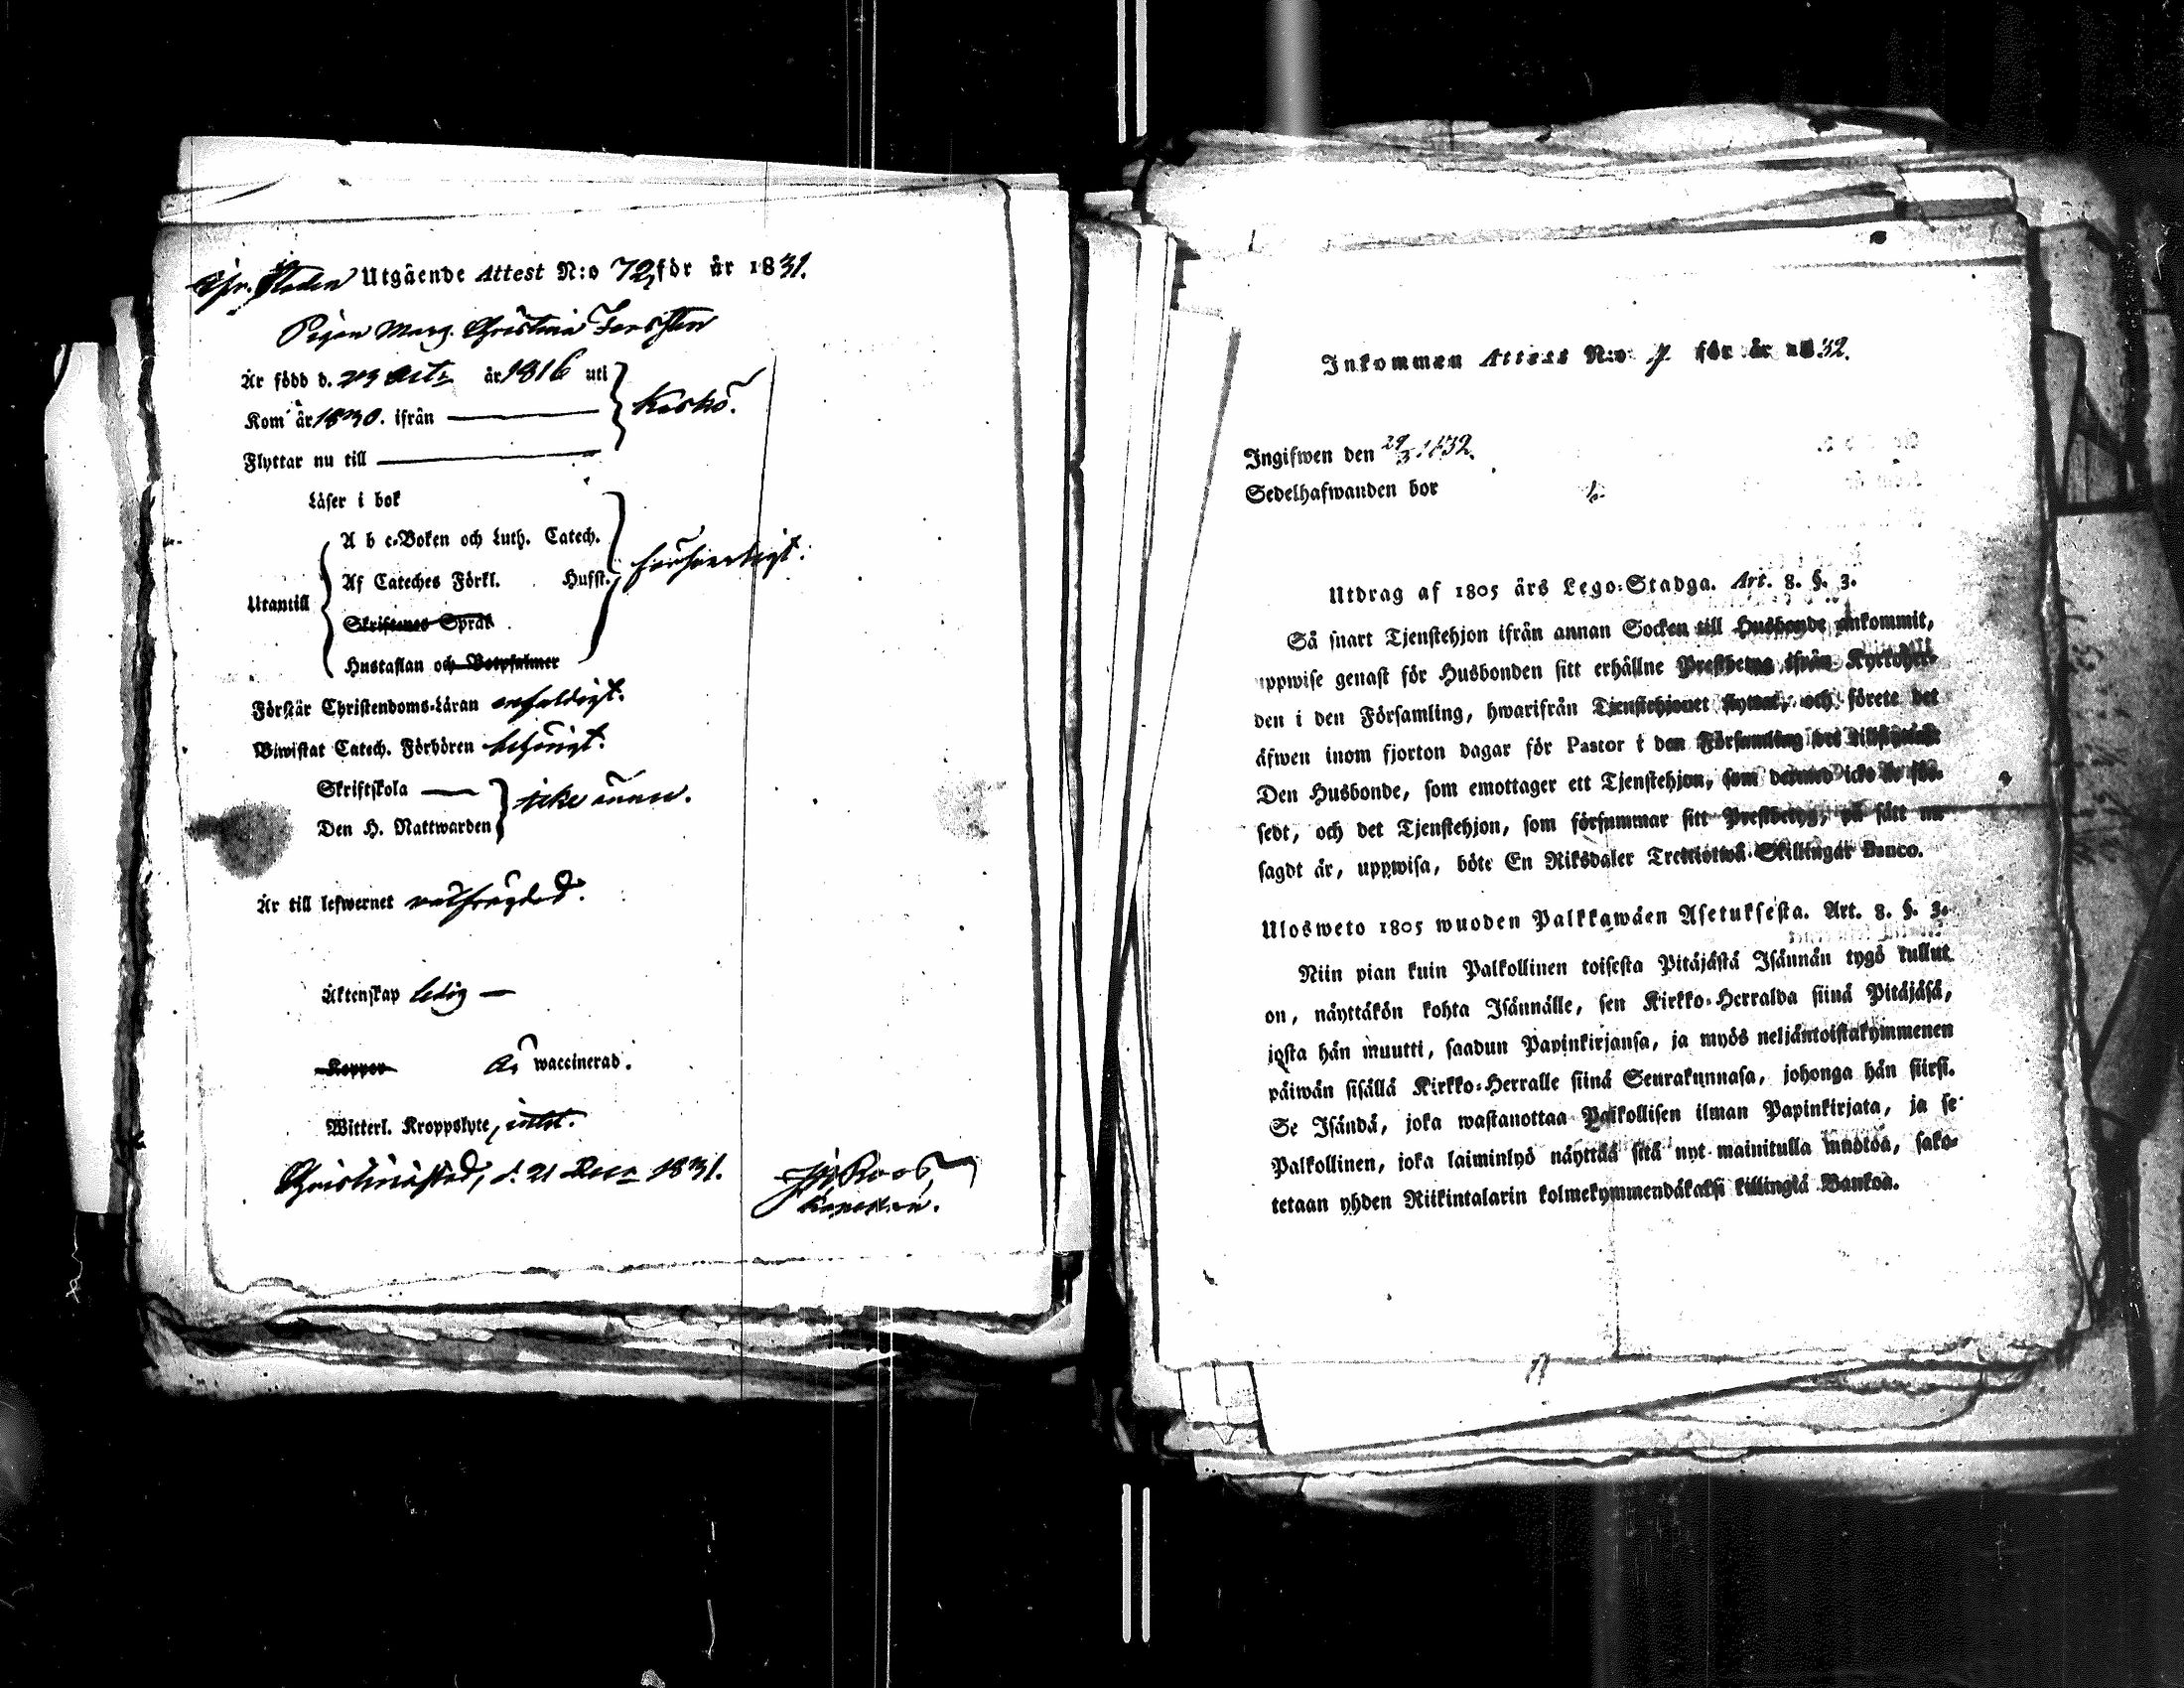 Chr. Staden Utgående Attest N:o 72, för år 1831.
Pigan Marg. Christina Forsten
Är född d. 23 Oct: år 1816 uti
Kom år 1830. ifrån
Kaskö.
Flyttar nu till
Läser i bok
A b c-Boken och Luth. Catech.
Af Cateches Förkl. Husst.
Utantill
försvarligt.
Skriftenes Språk
Hustaflan och Botpsalmer
Förstår Christendoms-Läran enfaldigt.
Biwistat Catech. Förhören behörigt.
Skriftskola
icke ännu.
Den H. Nattwarden
Är till lefwernet välfrägdad.
Äktenskap ledig
Koppor Är waccinerad.
Witterl. Kroppslyte, intet.
Christinestad, d. 21 Dec: 1831.
Roos,
Inkommen Attest N:o för år 1832.
Ingifwen den 29/3 1832.
Sedelhafwanden bor
Utdrag af 1805 års Lego-Stadga. Art. 8. §. 3.
Så snart Tjenstehjon ifrån annan Socken till Husbonde ankommit,
uppwise genast för Husbonden sitt erhållne Prestbetyg ifrån Kyrkoher-
den i den Församling, hwarifrån Tjenstehjonet flyttat, och förete det
äfwen inom fjorton dagar för Pastor i den Församling det tillflyttadt
Den Husbonde, som emottager ett Tjenstehjon, som dermed icke är för-
sedt, och det Tjenstehjon, som försummar sitt Prestbetyg, på sätt nu
sagdt är, uppwisa, böte En Riksdaler Trettiotwå Skillingar Banco.
Ulosweto 1805 wuoden Palkkawäen Asetuksesta. Art. 8. §. 3.
Niin pian kuin Palkollinen toisesta Pitäjästä Isännän tygö tullut
on, näyttäkön kohta Isännälle, sen Kirkko-Herralda siinä Pitäjäsä,
josta hän muutti, saadun Papinkirjansa, ja myös neljäntoistakymmenen
päiwän sisällä Kirkko-Herralle siinä Seurakunnasa, johonga hän siirsi.
Se Isändä, joka wastanottaa Palkollisen ilman Papinkirjata, ja se
Palkollinen, joka laiminlyö näyttää sitä nyt mainitulla muotoa, sako-
tetaan yhden Riikintalarin kolmekymmendäkaksi killingiä Bankoa.